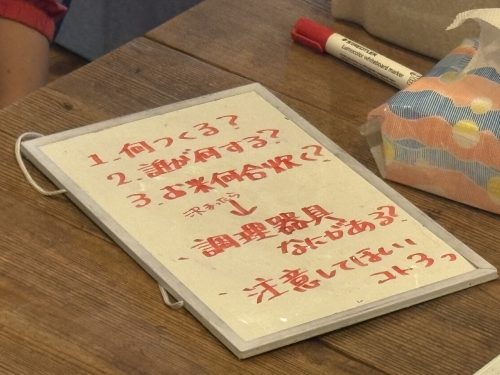 1. 何つくる?
2. 誰が何する?
3. お米何合炊く?
決まったら
↓
・調理器具
なにがある?
・注意してほしい
コト3つ
STAEDTLER
Lumocolor whiteboard marker